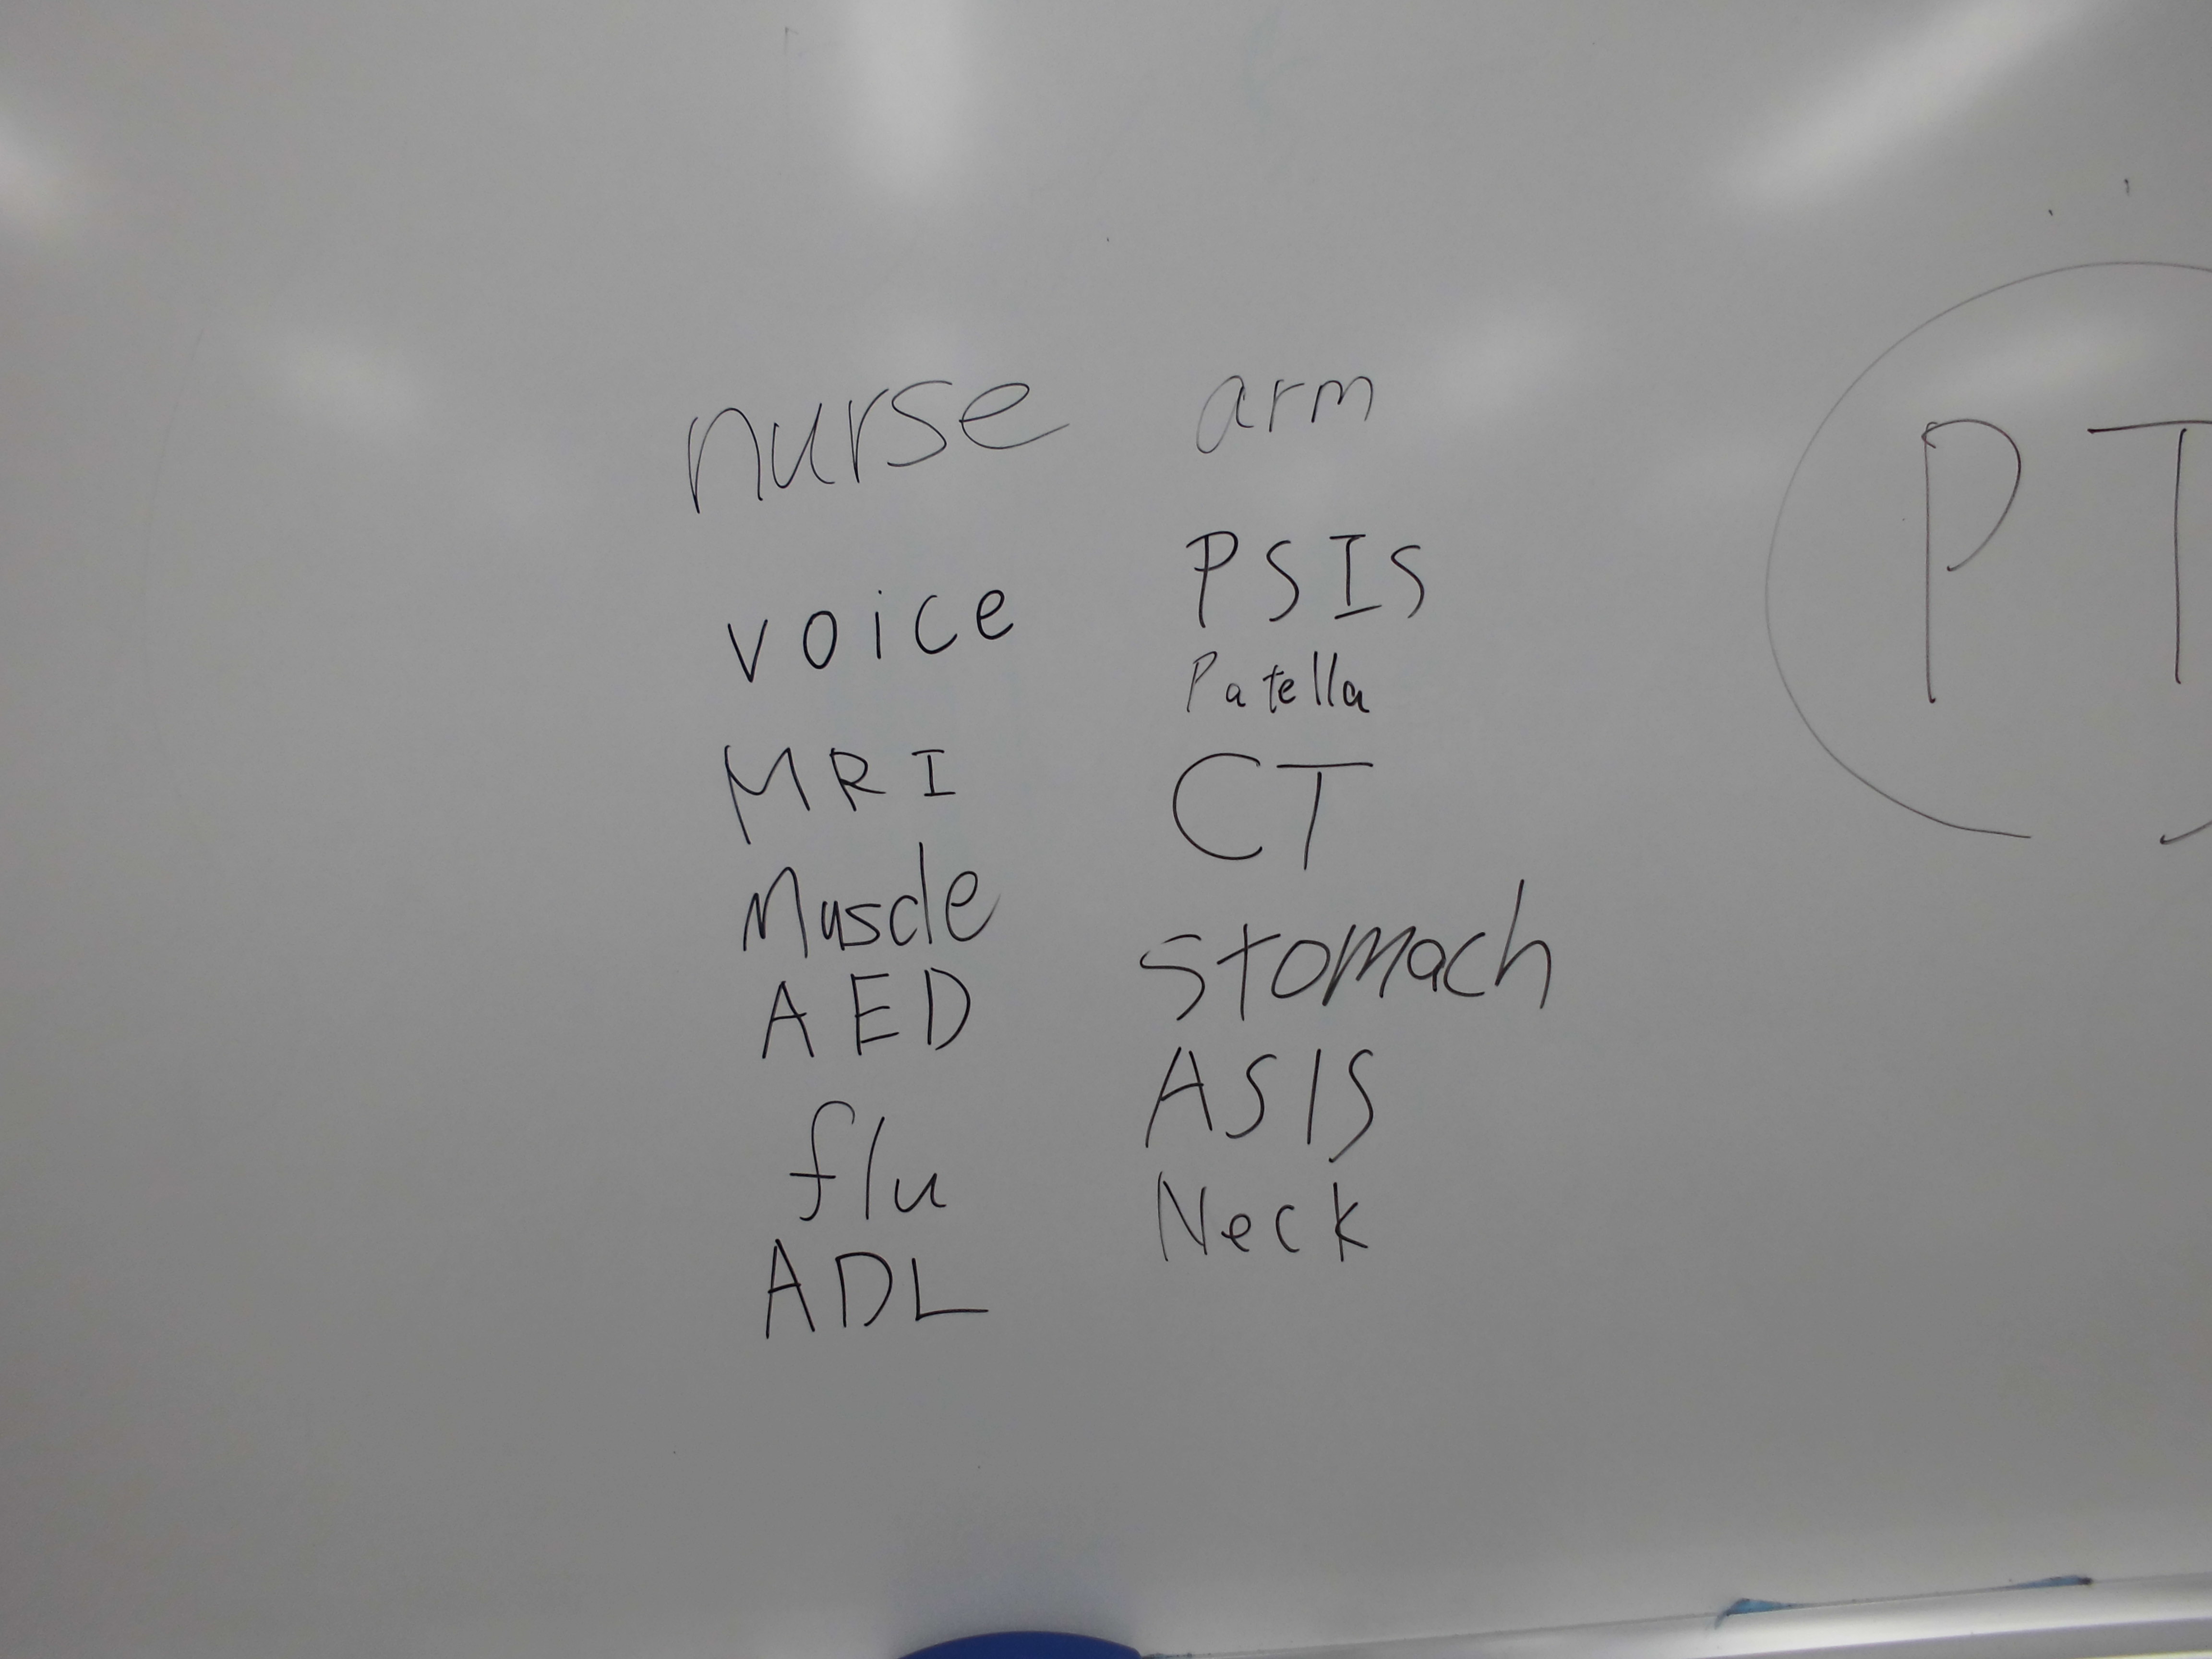 nurse
voice
MRI
Muscle
AED
flu
ADL
arm
PSIS
Patella
CT
stomach
ASIS
Neck
PT